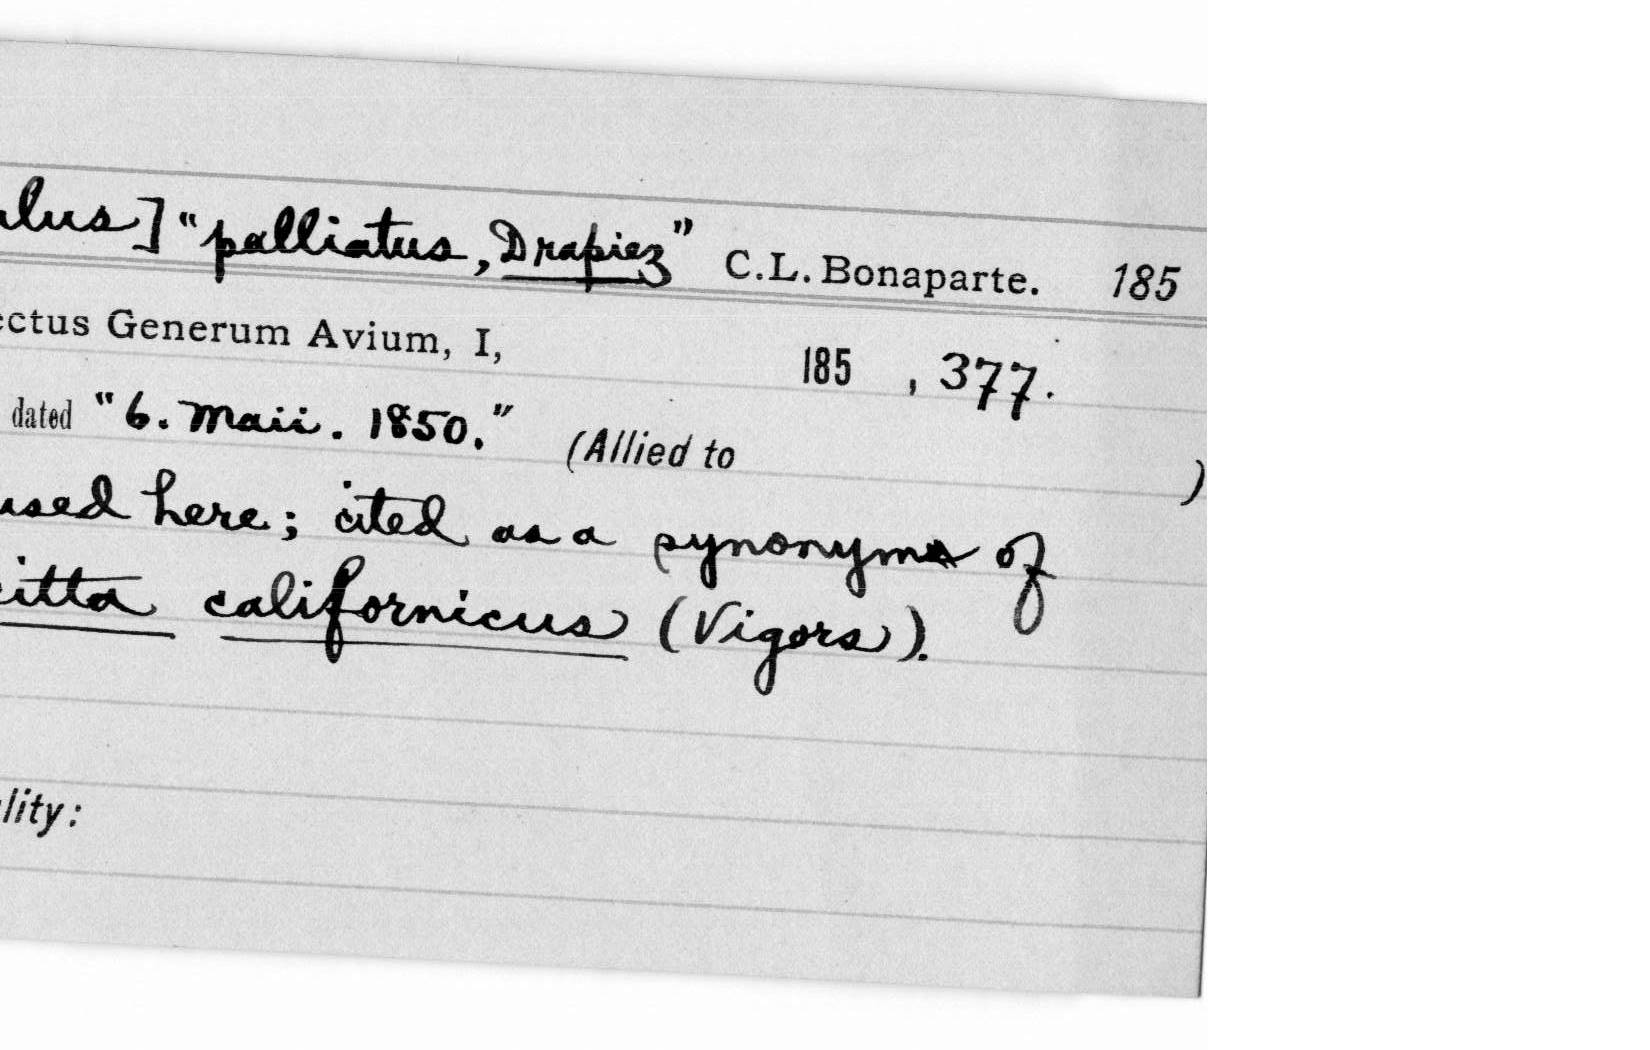 lus] "palliatus, Drapiez" C.L. Bonaparte. 185
ectus Generum Avium, I, 185 , 377.
dated "6. Maii. 1850." (Allied to )
used here; cited as a synonym of
itta californicus (Vigors).
lity: